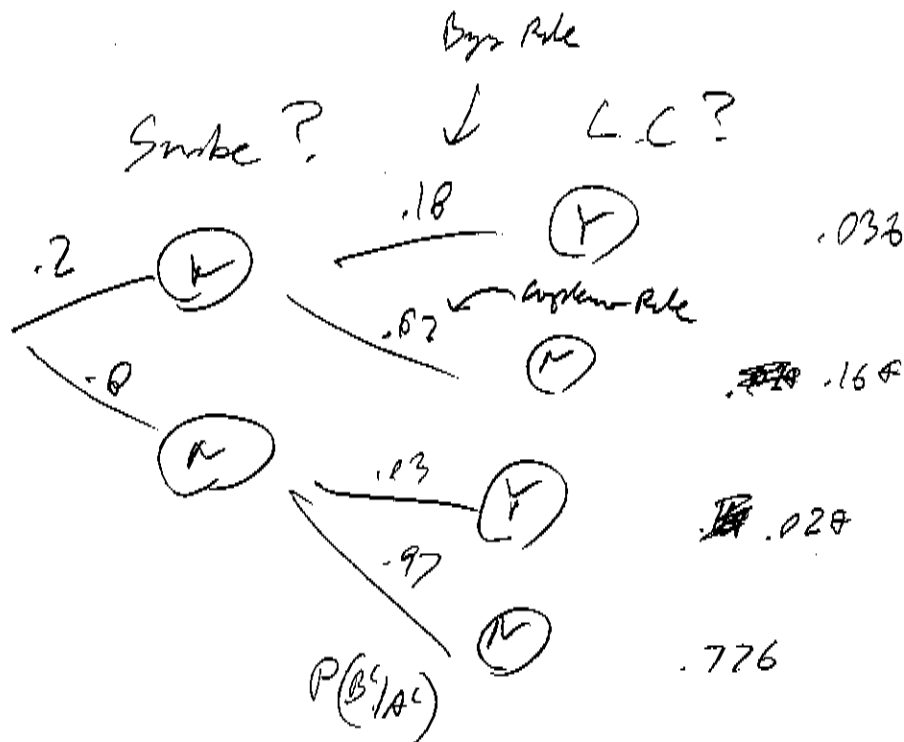 Bays Rule
Smoke? L.C?
.2 Y .18 Y .036
.82 Rule
N .164
.8
N .03 Y .024
.97
N .776
P(Bᶜ/Aᶜ)